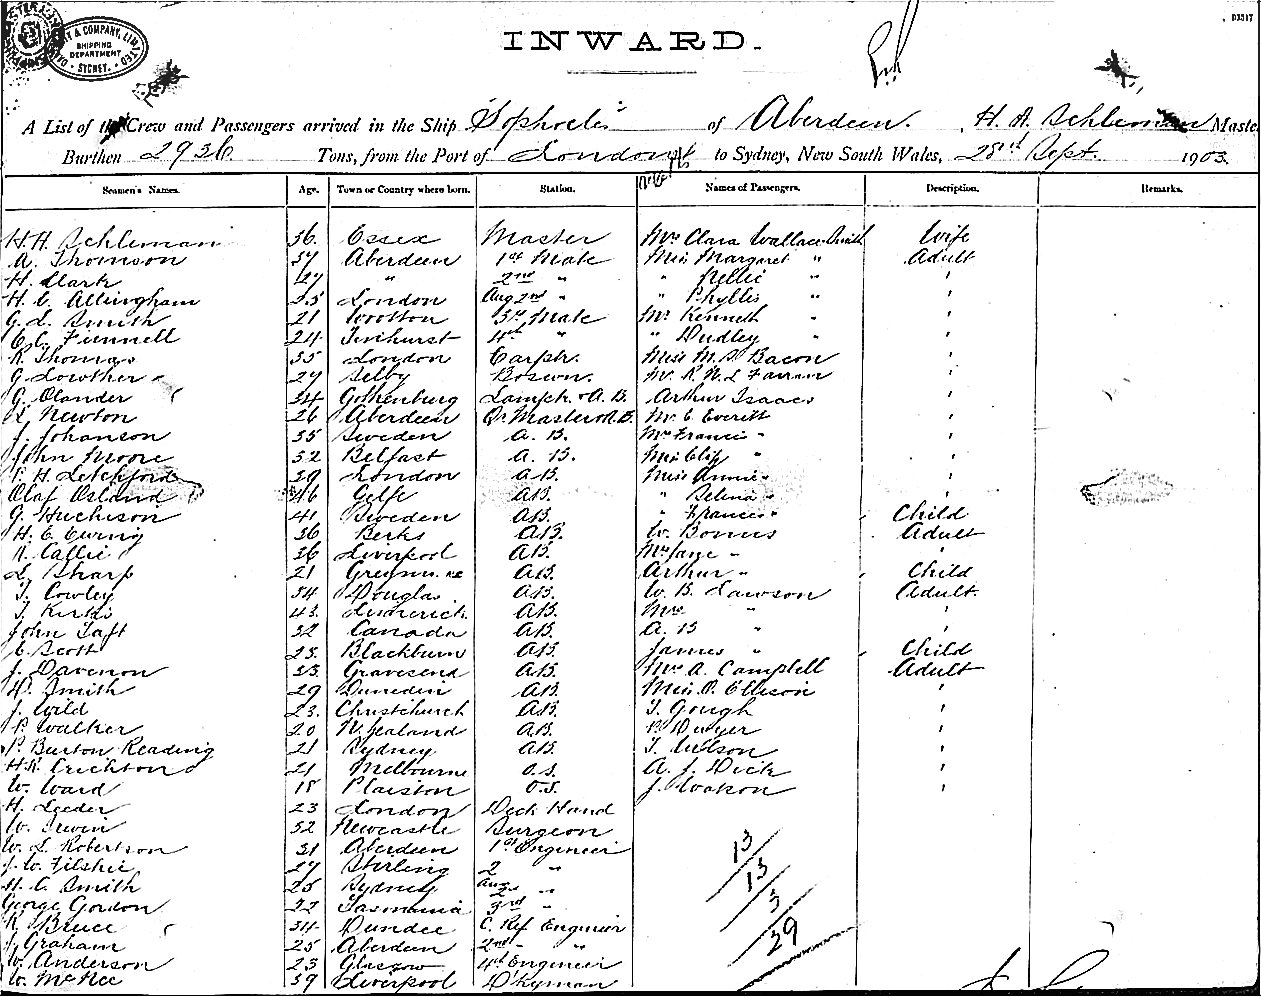 D3517
& COMPANY, LIMITED
SHIPPING DEPARTMENT
SYDNEY.
INWARD.
A List of the Crew and Passengers arrived in the Ship Sophocles of Aberdeen. H. A. Schleman Maste
Burthen 2936 Tons, from the Port of London to Sydney, New South Wales, 28th Sept. 1903.
Seamen's Names. Age. Town or Country where born. Station. Names of Passengers. Description. Remarks.
Schleman 36. Essex Master Mrs Clara Wallace-Smith Wife
A. Thomson 37 Aberdeen 1st Mate Miss Margaret " Adult
H. Clark 27 " 2nd " " Nellie " "
H. C. Allingham 25 London Aug 2nd " " Phyllis " "
G. L. Smith 21 Wootton 3rd Mate Mr Kenneth " "
C. C. Funnell 24 4th " " Dudley " "
R. Thomas 35 London Carptr. Miss M. S. Bacon "
G. Lowther 27 Selby Boswn. Mr R. N. L. Farran "
G. Olander 34 Gothenburg Lamptr. & A.B. Arthur Isaacs "
L. Newton 26 Aberdeen Qr Master & A.B. Mr C. Everitt "
J. Johanson 35 Sweden A.B. Francis " "
John Moore 32 Belfast A.B. " "
H. Letchford 39 London A.B. Miss Annie " "
Olaf Osland 46 A.B. " Selina " "
G. Huchison 41 Sweden A.B. " Frances " Child
H. E. Ewing 36 Berks A.B. W. Bonus Adult
R. Callie 36 Liverpool A.B. Mrs Jane " "
L. Sharp 21 A.B. Arthur " Child
T. Cowley 34 Douglas A.B. W. B. Lawson Adult.
T. 43. Limerick. A.B. Mrs " "
John Taft 32 Canada A.B. A. B " "
C. Scott 23. Blackburn A.B. James " Child
J. Davenon 33. Gravesend A.B. Mrs A. Campbell Adult
D. Smith 29 Dunedin A.B. Miss O. Ellison "
J. Wild 23. Christchurch A.B. T. Gough "
P. Walker 20 N. Zealand A.B. P. Dwyer "
P. Burton Reading 21 Sydney A.B. T. Wilson "
H. R. Crichton 21 Melbourne O.S. A. J. Dick "
W. Ward 18 Plaiston O.S. J. "
H. Leeder 23 London Deck Hand
W. Irwin 32 Newcastle Surgeon
W. L. Robertson 31 Aberdeen 1st Engineer
J. W. Filshie 27 Stirling 2 "
H. C. Smith 25 Sydney Aug 2nd "
George Gordon 22 Tasmania 3rd "
R. Bruce 34 Dundee C. Ref Engineer
J. Graham 25 Aberdeen 2nd " "
W. Anderson 23 Glasgow 4th Engineer
W. McKee 39 Liverpool D'kyman
13
13
3
29